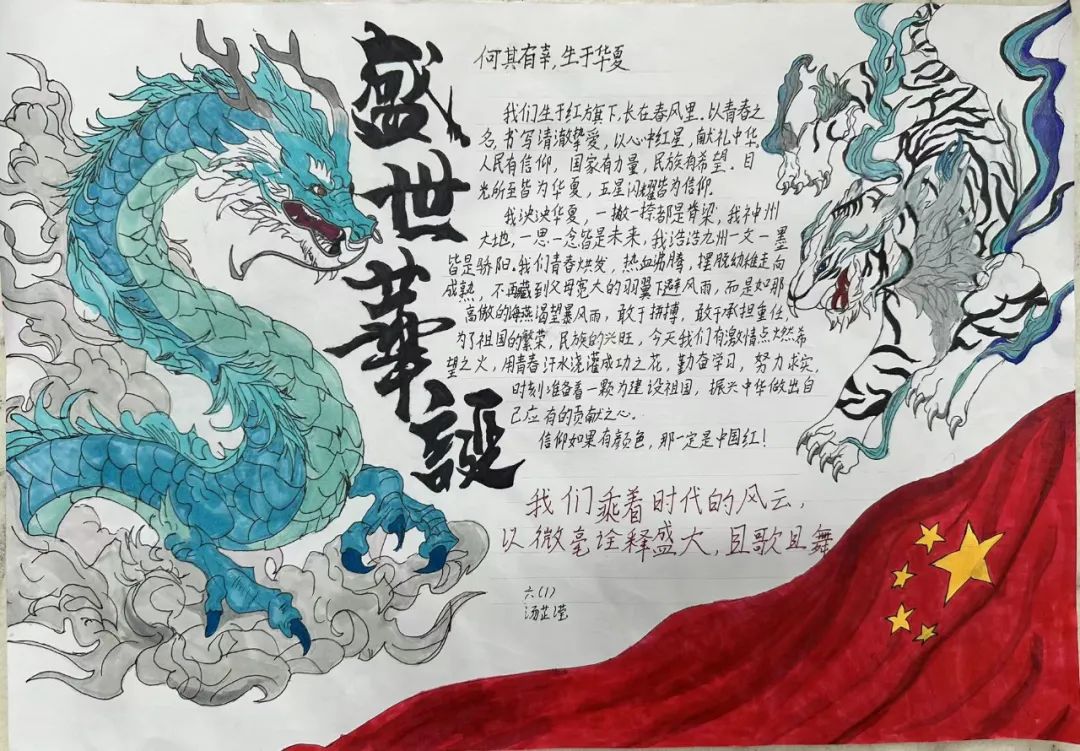 盛世華誕
何其有幸,生于华夏
我们生于红方旗下,长在春风里。以青春之
名,书写清澈挚爱,以心中红星,献礼中华,
人民有信仰,国家有力量,民族有希望。目
光所至皆为华夏,五星闪耀皆为信仰。
我泱泱华夏,一撇一捺都是脊梁,我神州
大地,一思一念皆是未来,我浩浩九州一文一墨
皆是骄阳。我们青春烘发,热血沸腾,摆脱幼稚走向
成熟,不再藏到父母宽大的羽翼下避风雨,而是如那
高傲的海燕渴望暴风雨,敢于拼搏,敢于承担重任,
为了祖国的繁荣,民族的兴旺,今天我们有激情点燃希
望之火,用青春汗水浇灌成功之花,勤奋学习,努力求实,
时刻准备着一颗为建设祖国,振兴中华做出自
己应有的贡献之心。
信仰如果有颜色,那一定是中国红!
我们乘着时代的风云,
以微毫诠释盛大,且歌且舞
六(1)
汤芷滢